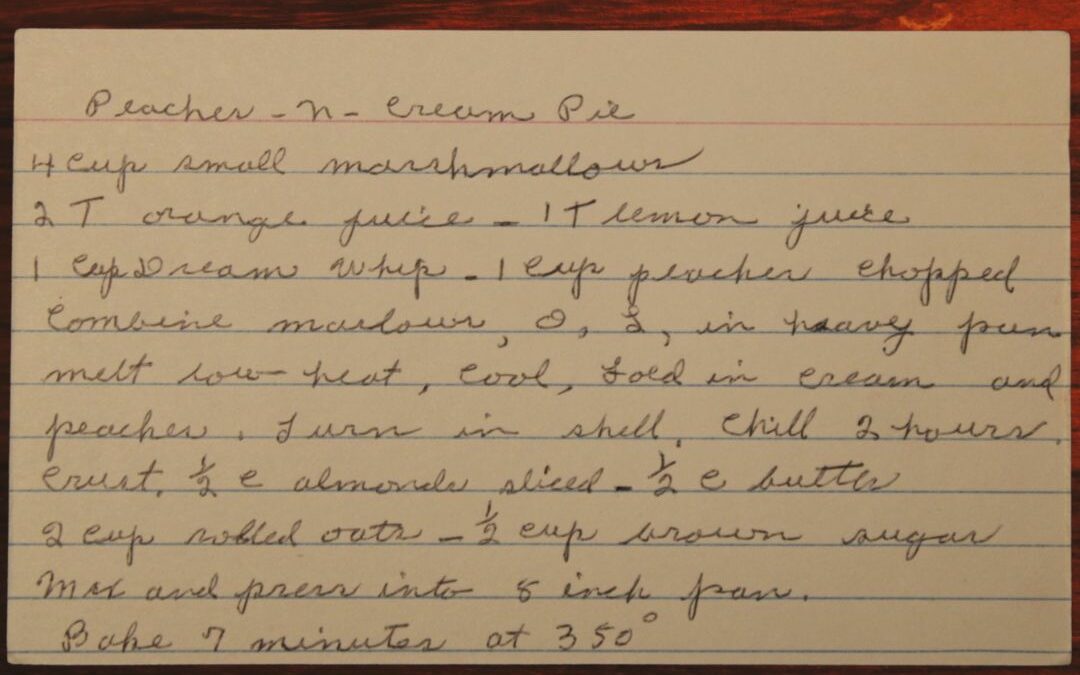 Peaches-n-Cream Pie
4 cup small marshmallows
2 T orange juice - 1 T lemon juice
1 cup Dream Whip - 1 cup peaches chopped
Combine marlows, O, L, in heavy pan
melt low heat, cool, Fold in cream and
peaches. Turn in shell. Chill 2 hours.
Crust. ½ c almonds sliced - ½ c butter
2 cup rolled oats - ½ cup brown sugar
Mix and press into 8 inch pan.
Bake 7 minutes at 350°